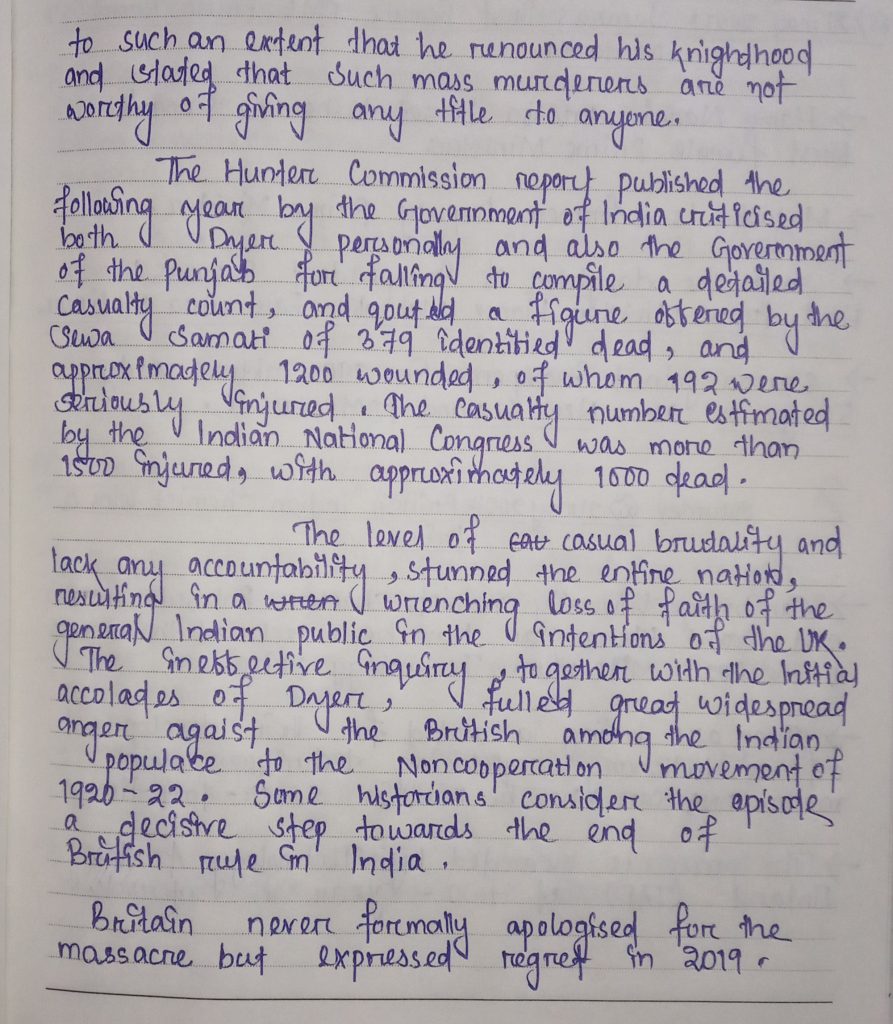 to such an extent that he renounced his knighdhood
and stated that such mass murderers are not
worthy of giving any title to anyone.
The Hunter Commission report published the
following year by the Government of India criticised
both Dyer personally and also the Government
of the Punjab for falling to compile a detailed
casualty count, and qouted a figure offered by the
Sewa Samati of 379 identified dead, and
approximately 1200 wounded, of whom 192 were
seriously injured. The casualty number estimated
by the Indian National Congress was more than
1500 injured, with approximately 1000 dead.
The level of cau casual brudality and
lack any accountability, stunned the entire nation,
resulting in a wren wrenching loss of faith of the
general Indian public in the intentions of the UK.
The ineffective inquiry, together with the Initial
accolades of Dyer, fulled great widespread
anger agaist the British among the Indian
populate to the Noncooperation movement of
1920-22. Some historians consider the episode
a decisive step towards the end of
British rule in India.
Britain never formally apologised for the
massacre but expressed regret in 2019.